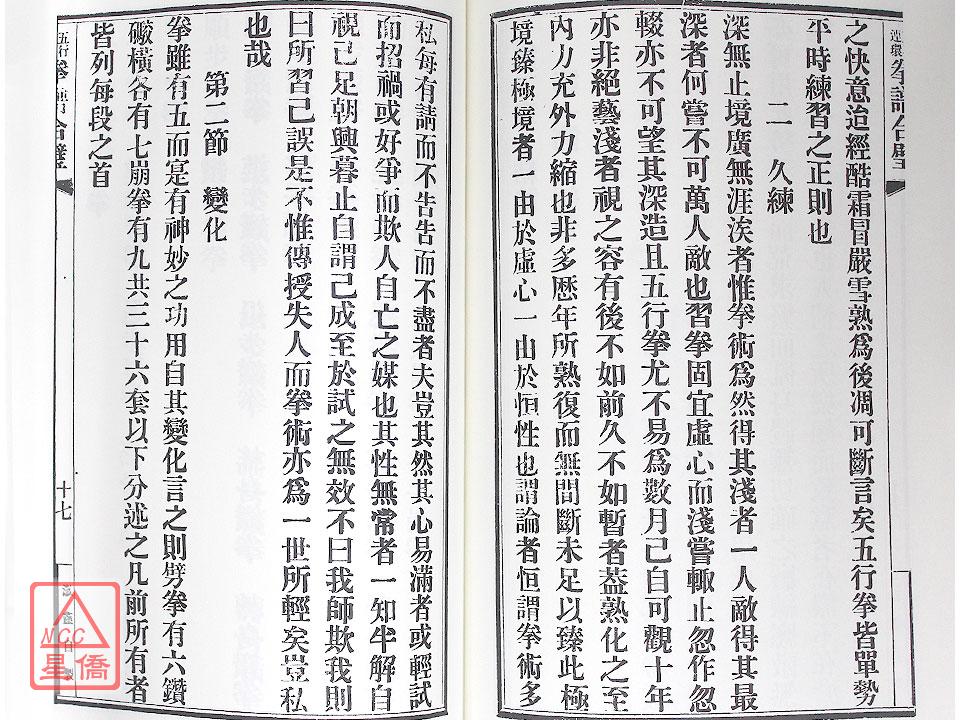 之快意迨經酷霜冒嚴雪熟爲後凋可斷言矣五行拳皆單勢
平時練習之正則也
二　久練
深無止境廣無涯涘者惟拳術爲然得其淺者一人敵得其最
深者何嘗不可萬人敵也習拳固宜虛心而淺嘗輒止忽作忽
輟亦不可望其深造且五行拳尤不易爲數月已自可觀十年
亦非絕藝淺者視之容有後不如前久不如暫者蓋熟化之至
內力充外力縮也非多歷年所熟復而無間斷未足以臻此極
境臻極境者一由於虛心一由於恒性也謂論者恒謂拳術多
私每有請而不告告而不盡者夫豈其然其心易滿者或輕試
而招禍或好爭而欺人自亡之媒也其性無常者一知半解自
視已足朝興暮止自謂已成至於試之無效不曰我師欺我則
曰所習已誤是不惟傳授失人而拳術亦爲一世所輕矣豈私
也哉
第二節　變化
拳雖有五而寔有神妙之功用自其變化言之則劈拳有六鑽
礮橫各有七崩拳有九共三十六套以下分述之凡前所有者
皆列每段之首
十七
NCC
星僑